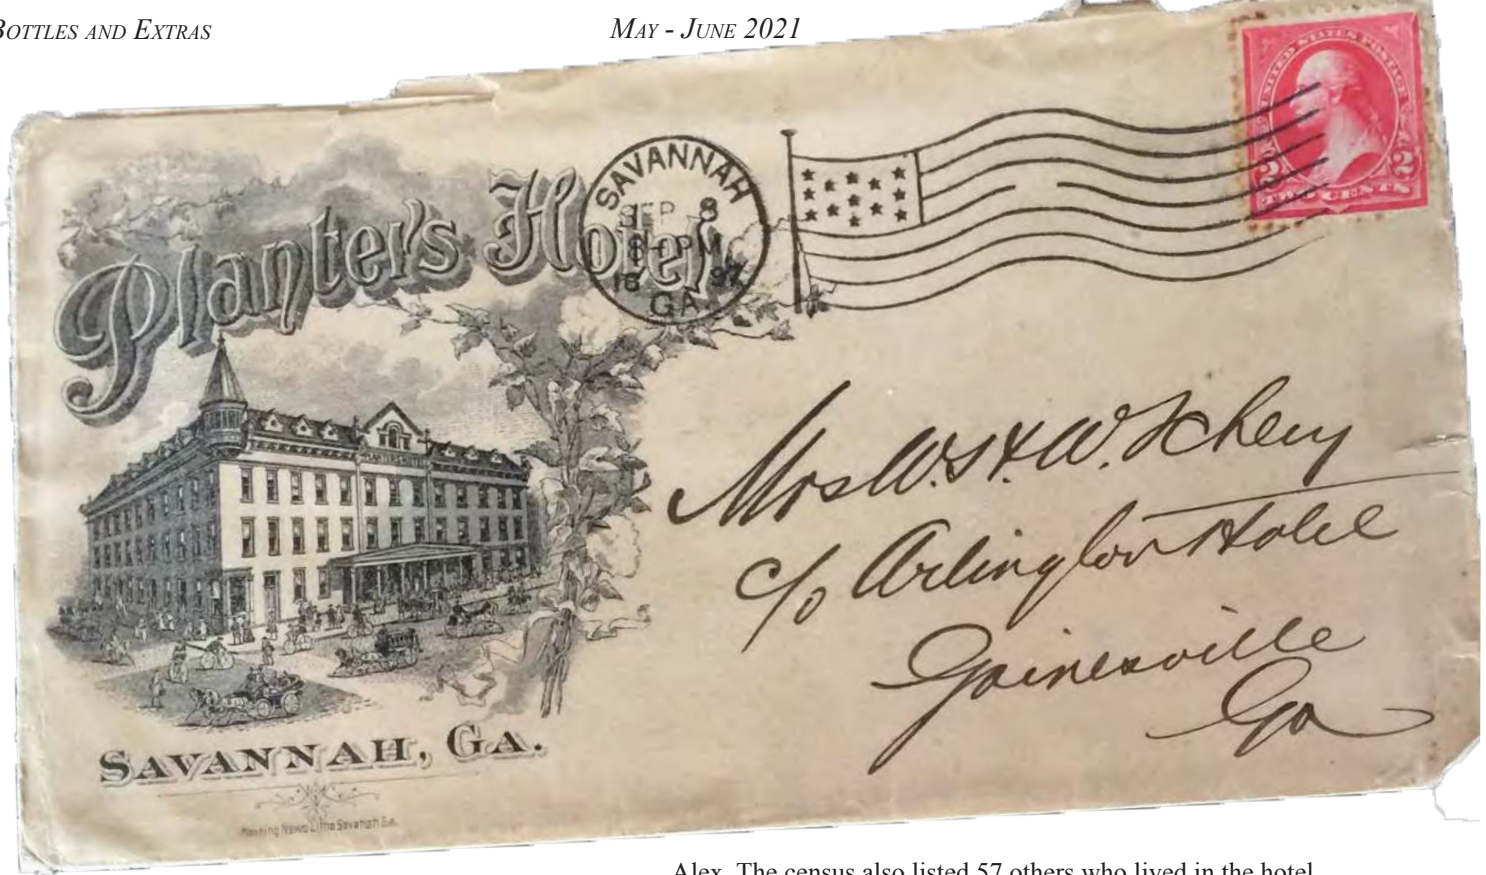 BOTTLES AND EXTRAS
MAY - JUNE 2021
Planter's Hotel
SAVANNAH
SEP 8
PM
18 97
GA
UNITED STATES POSTAGE
2 2
TWO CENTS
Mrs W. S. & W.
c/o Arlington Hotel
Gainesville
Ga
SAVANNAH, GA.
Morning News Litho Savanah Ga.
Alex. The census also listed 57 others who lived in the hotel